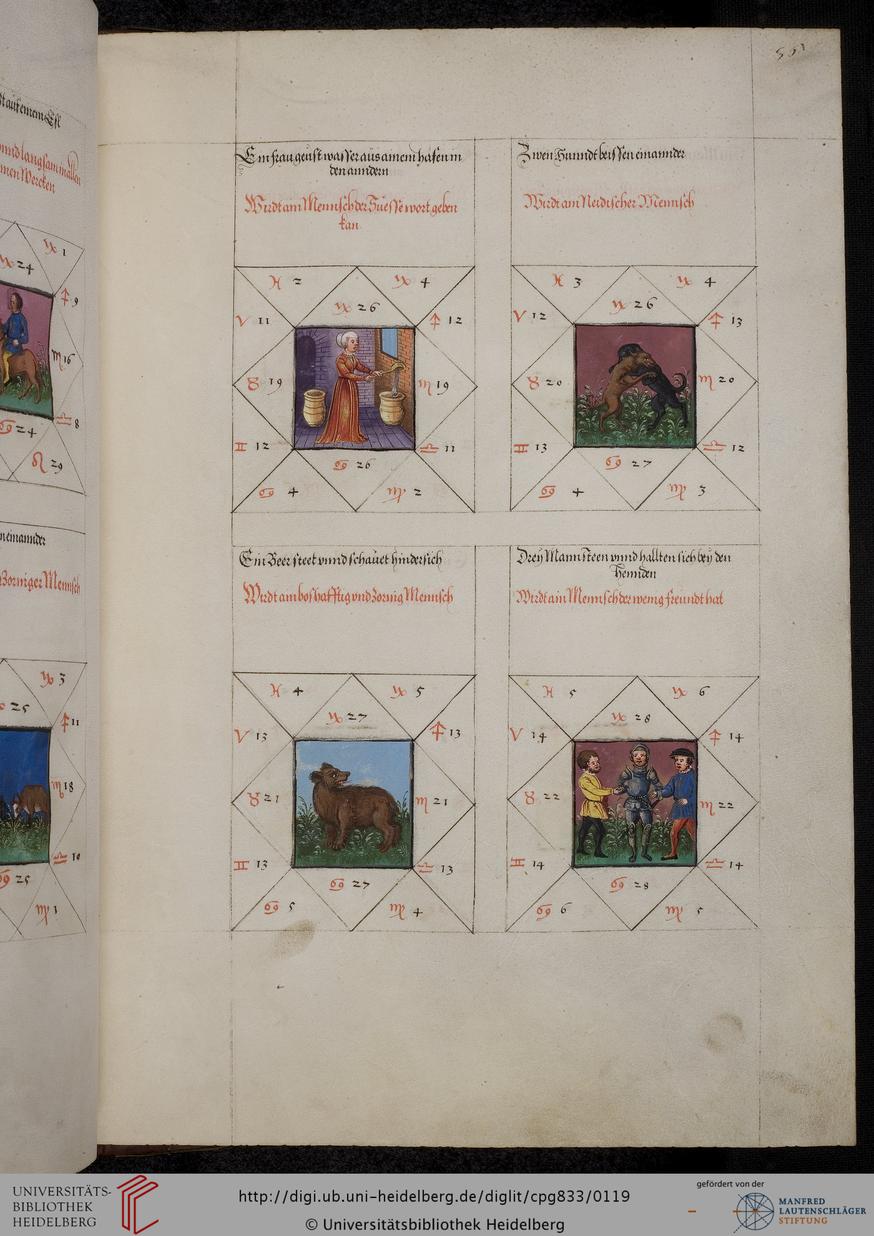 Ein frau geust wasser aus ainem hafen in
den anndern
Wirdt ain Mennsch der Suesse wort geben
kan
♓ 2
♑ 4
♑ 26
♈ 11
♐ 12
♉ 19
♏ 19
♊ 12
♎ 11
♋ 26
♋ 4
♍ 2
Zwen Hunndt beissen einannder
Wirdt ain Neidischer Mennsch
♓ 3
♑ 4
♑ 26
♈ 12
♐ 13
♉ 20
♏ 20
♊ 13
♎ 12
♋ 27
♋ 4
♍ 3
Ein Beer steet vnnd schauet hindersich
Wirdt ain boshafftig vnd Zornig Mennsch
♓ 4
♑ 5
♑ 27
♈ 13
♐ 13
♉ 21
♏ 21
♊ 13
♎ 13
♋ 27
♋ 5
♍ 4
Drey Mann steen vnnd hallten sich bey den
Henndn
Wirdt ain Mennsch der wenig freundt hat
♓ 5
♑ 6
♑ 28
♈ 14
♐ 14
♉ 22
♏ 22
♊ 14
♎ 14
♋ 28
♋ 6
♍ 5
♑ 1
♑ 24
♐ 9
♏ 16
♎ 8
♋ 24
♌ 29
neinannder
Zorniger Mennsch
♑ 3
25
♐ 11
♏ 18
♎ 10
♋ 25
♍ 1
UNIVERSITÄTS-
BIBLIOTHEK
HEIDELBERG
http://digi.ub.uni-heidelberg.de/diglit/cpg833/0119
© Universitätsbibliothek Heidelberg
gefördert von der
MANFRED
LAUTENSCHLÄGER
STIFTUNG